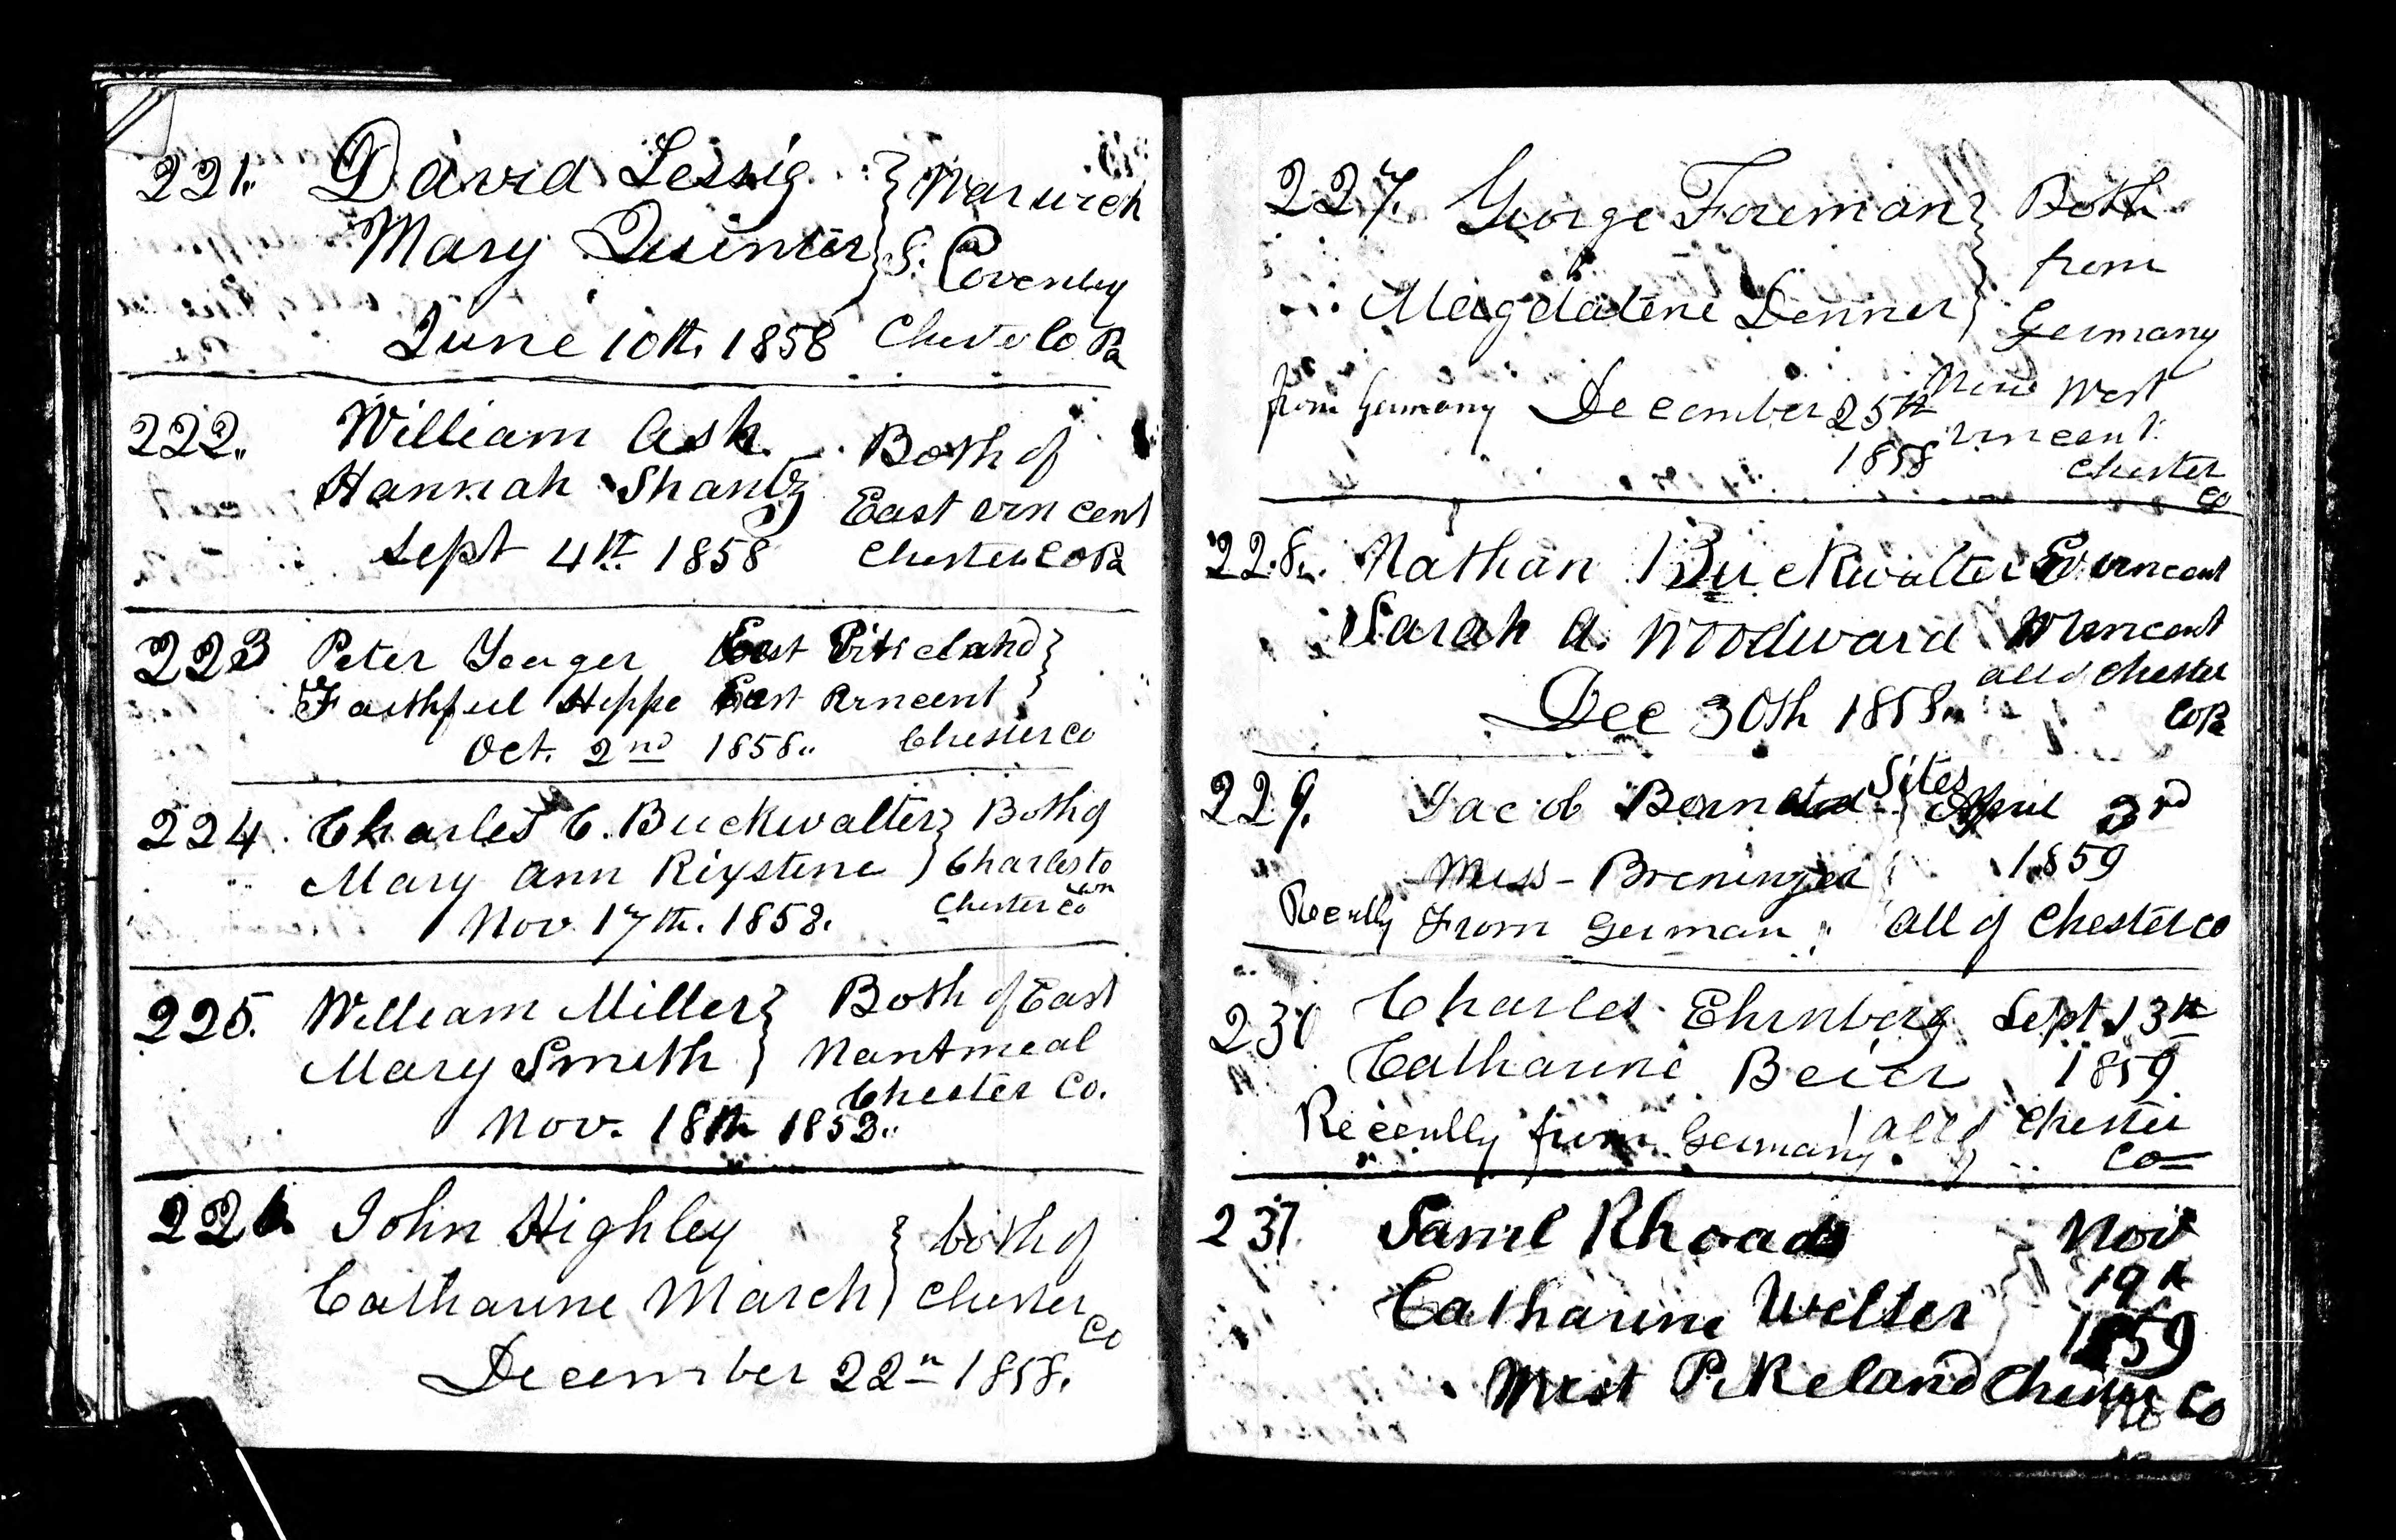 221. David Lessig } Warwich
Mary Quinter } S. Coventry
June 10th. 1858 Chester Co Pa
222. William Ash Both of
Hannah Shantz East Vincent
Sept 4th 1858 Chester Co Pa
223 Peter Yeager East Pikeland }
Faithful Heppe East Vincent
Oct. 2nd 1858. Chester Co
224. Charles C. Buckwalter } Both of
Mary Ann Rixstine } Charlestown
Nov 17th. 1858. Chester Co
225. William Miller } Both of East
Mary Smith } Nantmeal
Chester Co.
Nov. 18th 1858.
226 John Highley } both of
Catharine March } Chester Co
December 22n 1858.
227. George Foreman } Both
from
Magdalene Denner } Germany
from Germany December 25th Now West
Vincent
1858 Chester
Co
228. Nathan Buckwalter E Vincent
Sarah A. Woodward W Vincent
all of Chester
Dec 30th 1858. Co Pa
229. Jacob Sites } April 3rd
Miss - Breninger 1859
From German all of Chester Co
230 Charles Ehrnberg Sept 13th
Catharine Beier 1859
Recently from Germany all of Chester
Co
231 Saml Rhoads Nov
19th
Catharine Welter 1859
West Pikeland Chester Co